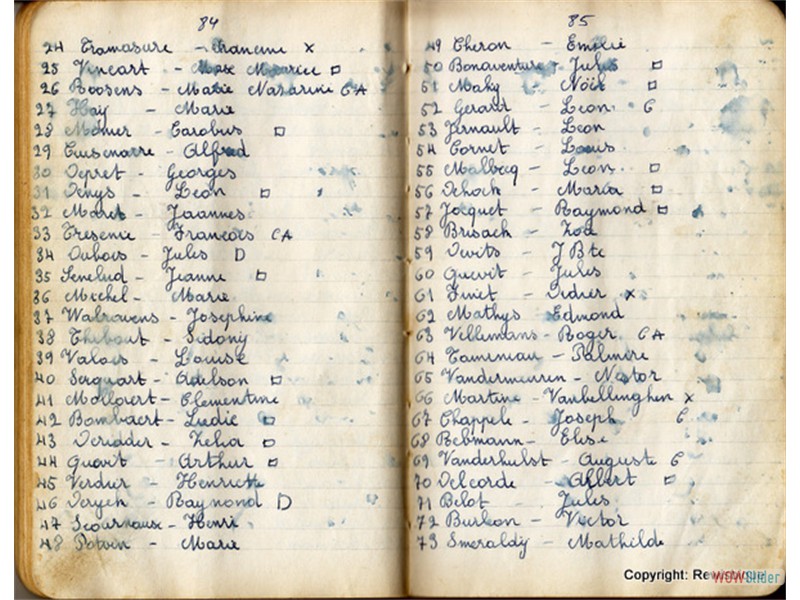 84
24 Tramasure - Francine x
25 Vincart - Max Maurice □
26 Roosens - Marie Nazarine CA
27 Hay - Marie
28 Monier - Carobus □
29 Cuisenaire - Alfred
30 Depret - Georges
31 Denys - Leon □
32 Maret - Joannes
33 Tresenie - Francois CA
34 Dubois - Jules D
35 Senelud - Jeanne □
36 Michel - Marie
37 Walravens - Josephine
38 Thibout - Sidony
39 Valois - Louise
40 Serquart - Adelson □
41 Mollaert - Clementine
42 Bombaert - Ludie □
43 Deridder - Zelia □
44 Quovit - Arthur □
45 Verdur - Henriette
46 Deryck - Raymond D
47 Scournaux - Henri
48 Potvin - Marie
85
49 Cheron - Emilie
50 Bonaventure - Jules □
51 Maky - Noël □
52 Gerard - Leon C
53 Jernault - Leon
54 Cornet - Louis
55 Malbecq - Leon □
56 Dehoch - Maria □
57 Jocquet - Raymond □
58 Brisack - Zoe
59 Dewits - J Bte
60 Quevit - Jules
61 Finet - Didier x
62 Mathys Edmond
63 Villemans - Roger CA
64 Tameniau - Palmire
65 Vandermeuren - Nestor
66 Martine - Vanhellinghen x
67 Chappele - Joseph C
68 Bebmann - Elise
69 Vanderhulst - Auguste C
70 Delcorde - Albert □
71 Belot - Jules
72 Burlion - Victor
73 Smeraldy - Mathilde
Copyright: Re
WOWSlider